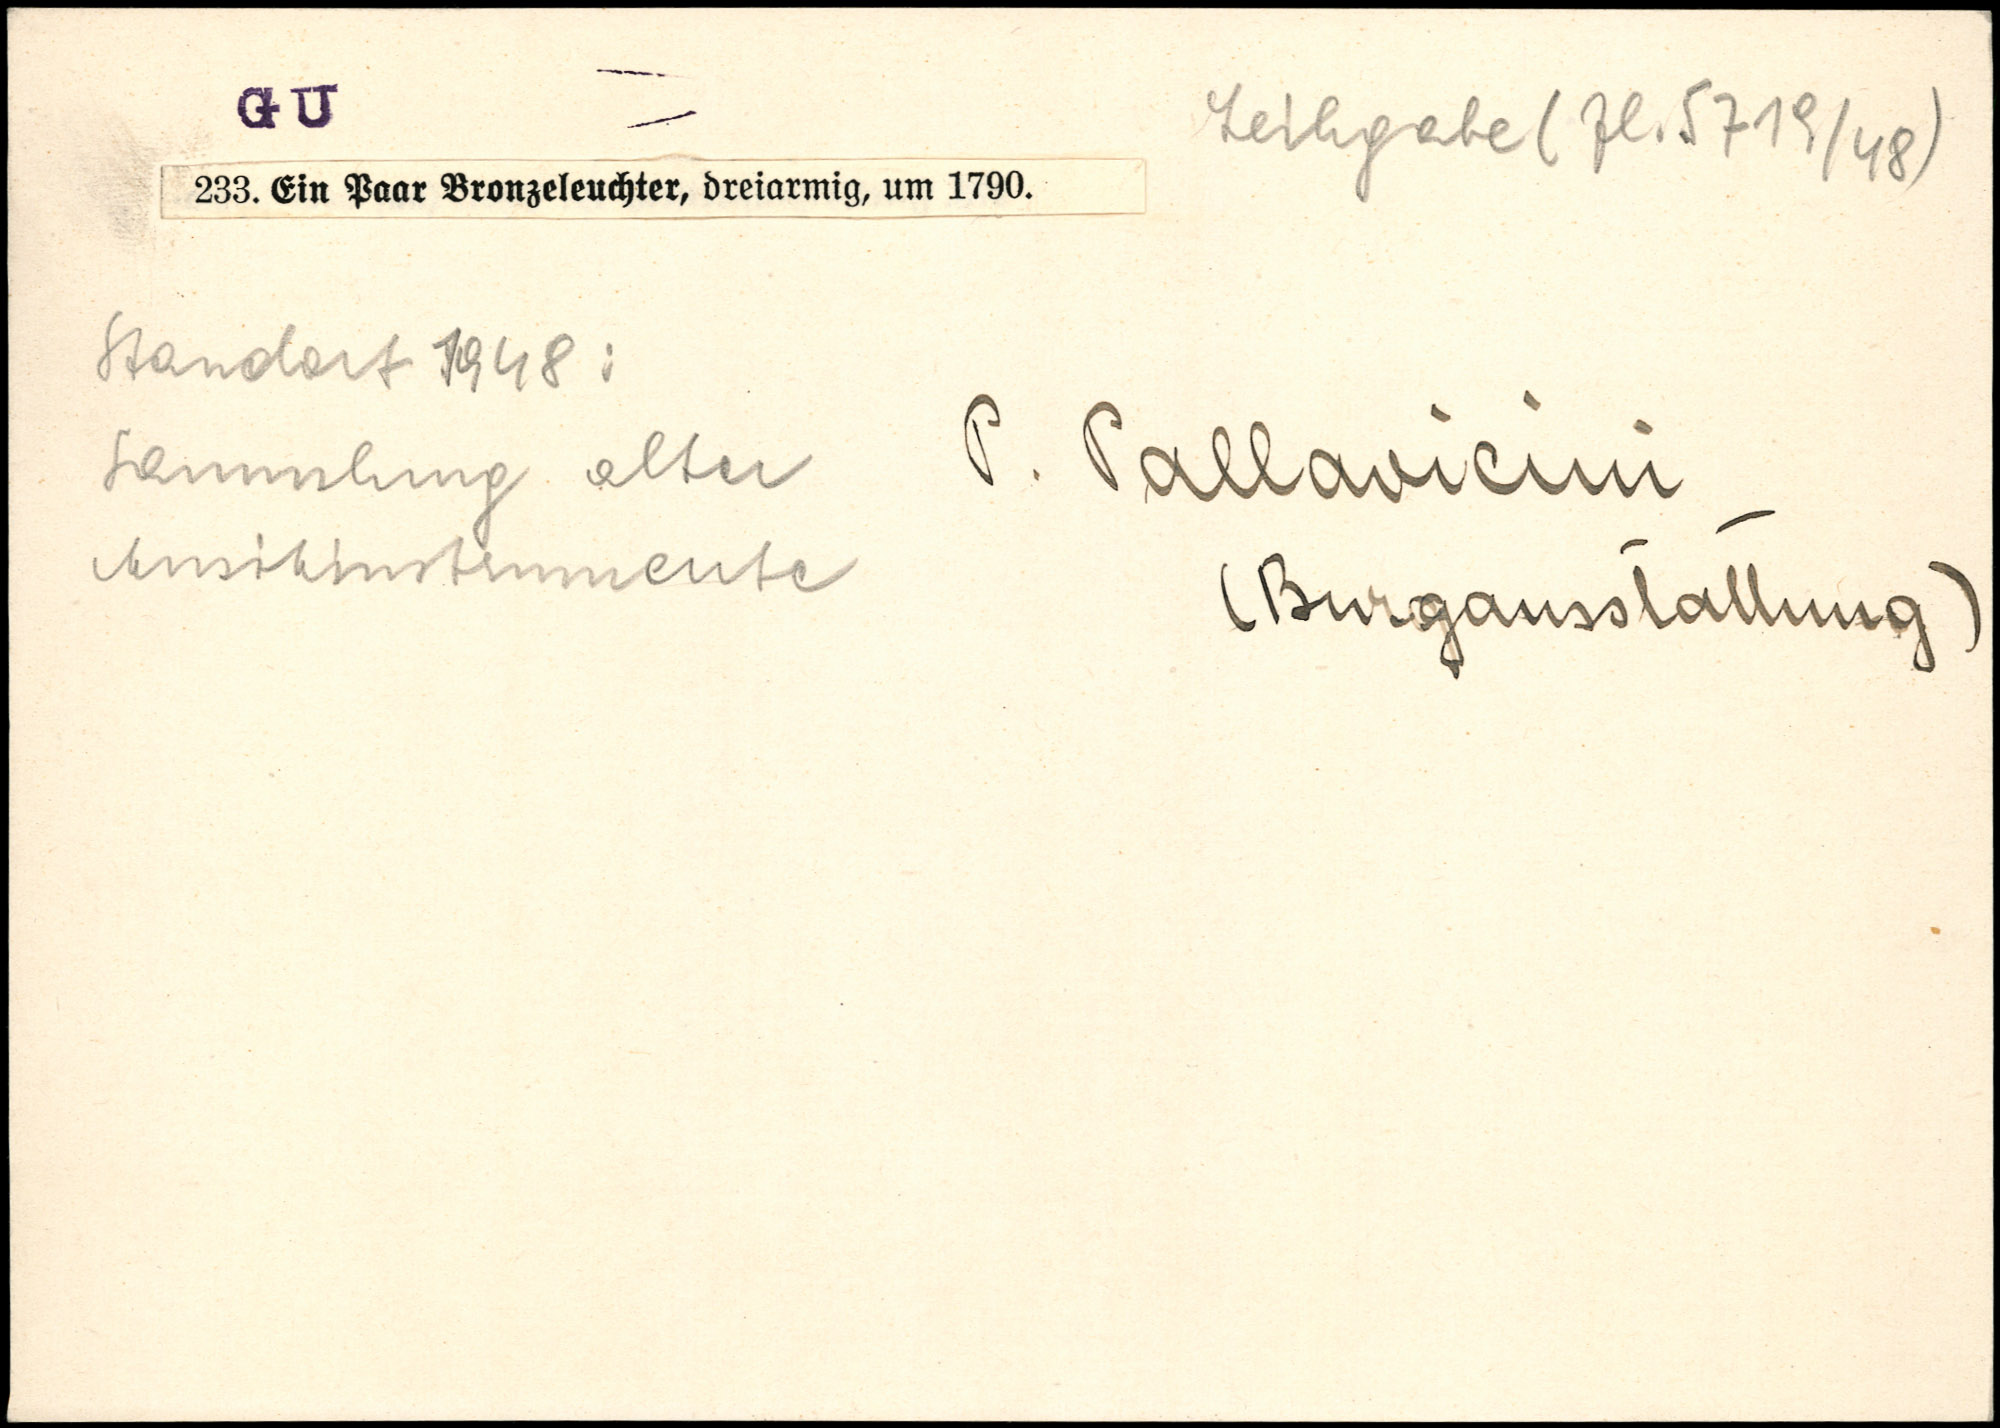 GU
Leihgabe (Zl. 5719/48)
233. Ein Paar Bronzeleuchter, dreiarmig, um 1790.
Standort 1948:
Sammlung alter
Musikinstrumente
P. Pallavicini
(Burgausstattung)